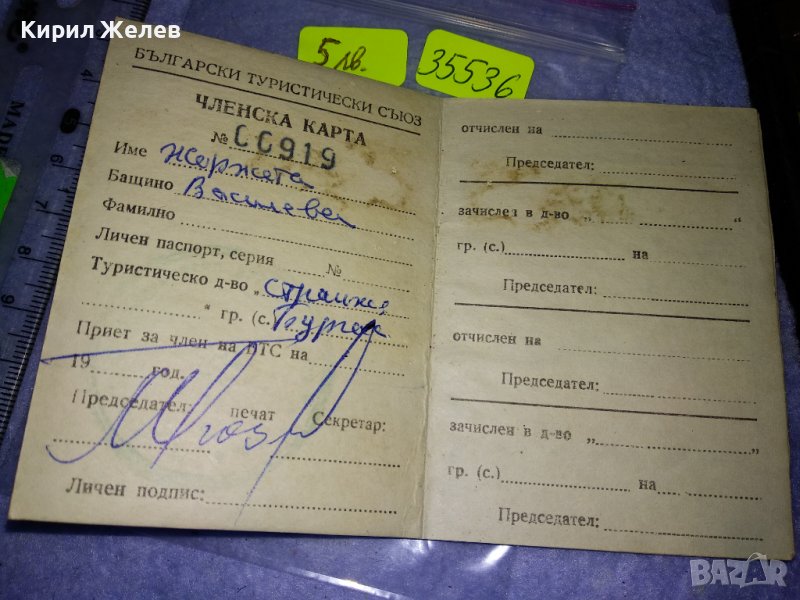 Кирил Желев
5 лв.
35536
БЪЛГАРСКИ ТУРИСТИЧЕСКИ СЪЮЗ
ЧЛЕНСКА КАРТА
№ 00919
Име Жоржета
Бащино Василева
Фамилно
Личен паспорт, серия № 
Туристическо д-во „Странджа
“ гр. (с. Бургас
Приет за член на БТС на
19 год.
Председател: печат Секретар:
Личен подпис:
отчислен на
Председател:
зачислен в д-во „ “
гр. (с.) на
Председател:
отчислен на
Председател:
зачислен в д-во „ “
гр. (с.) на
Председател:
4
6
7
8
9
BAZAR